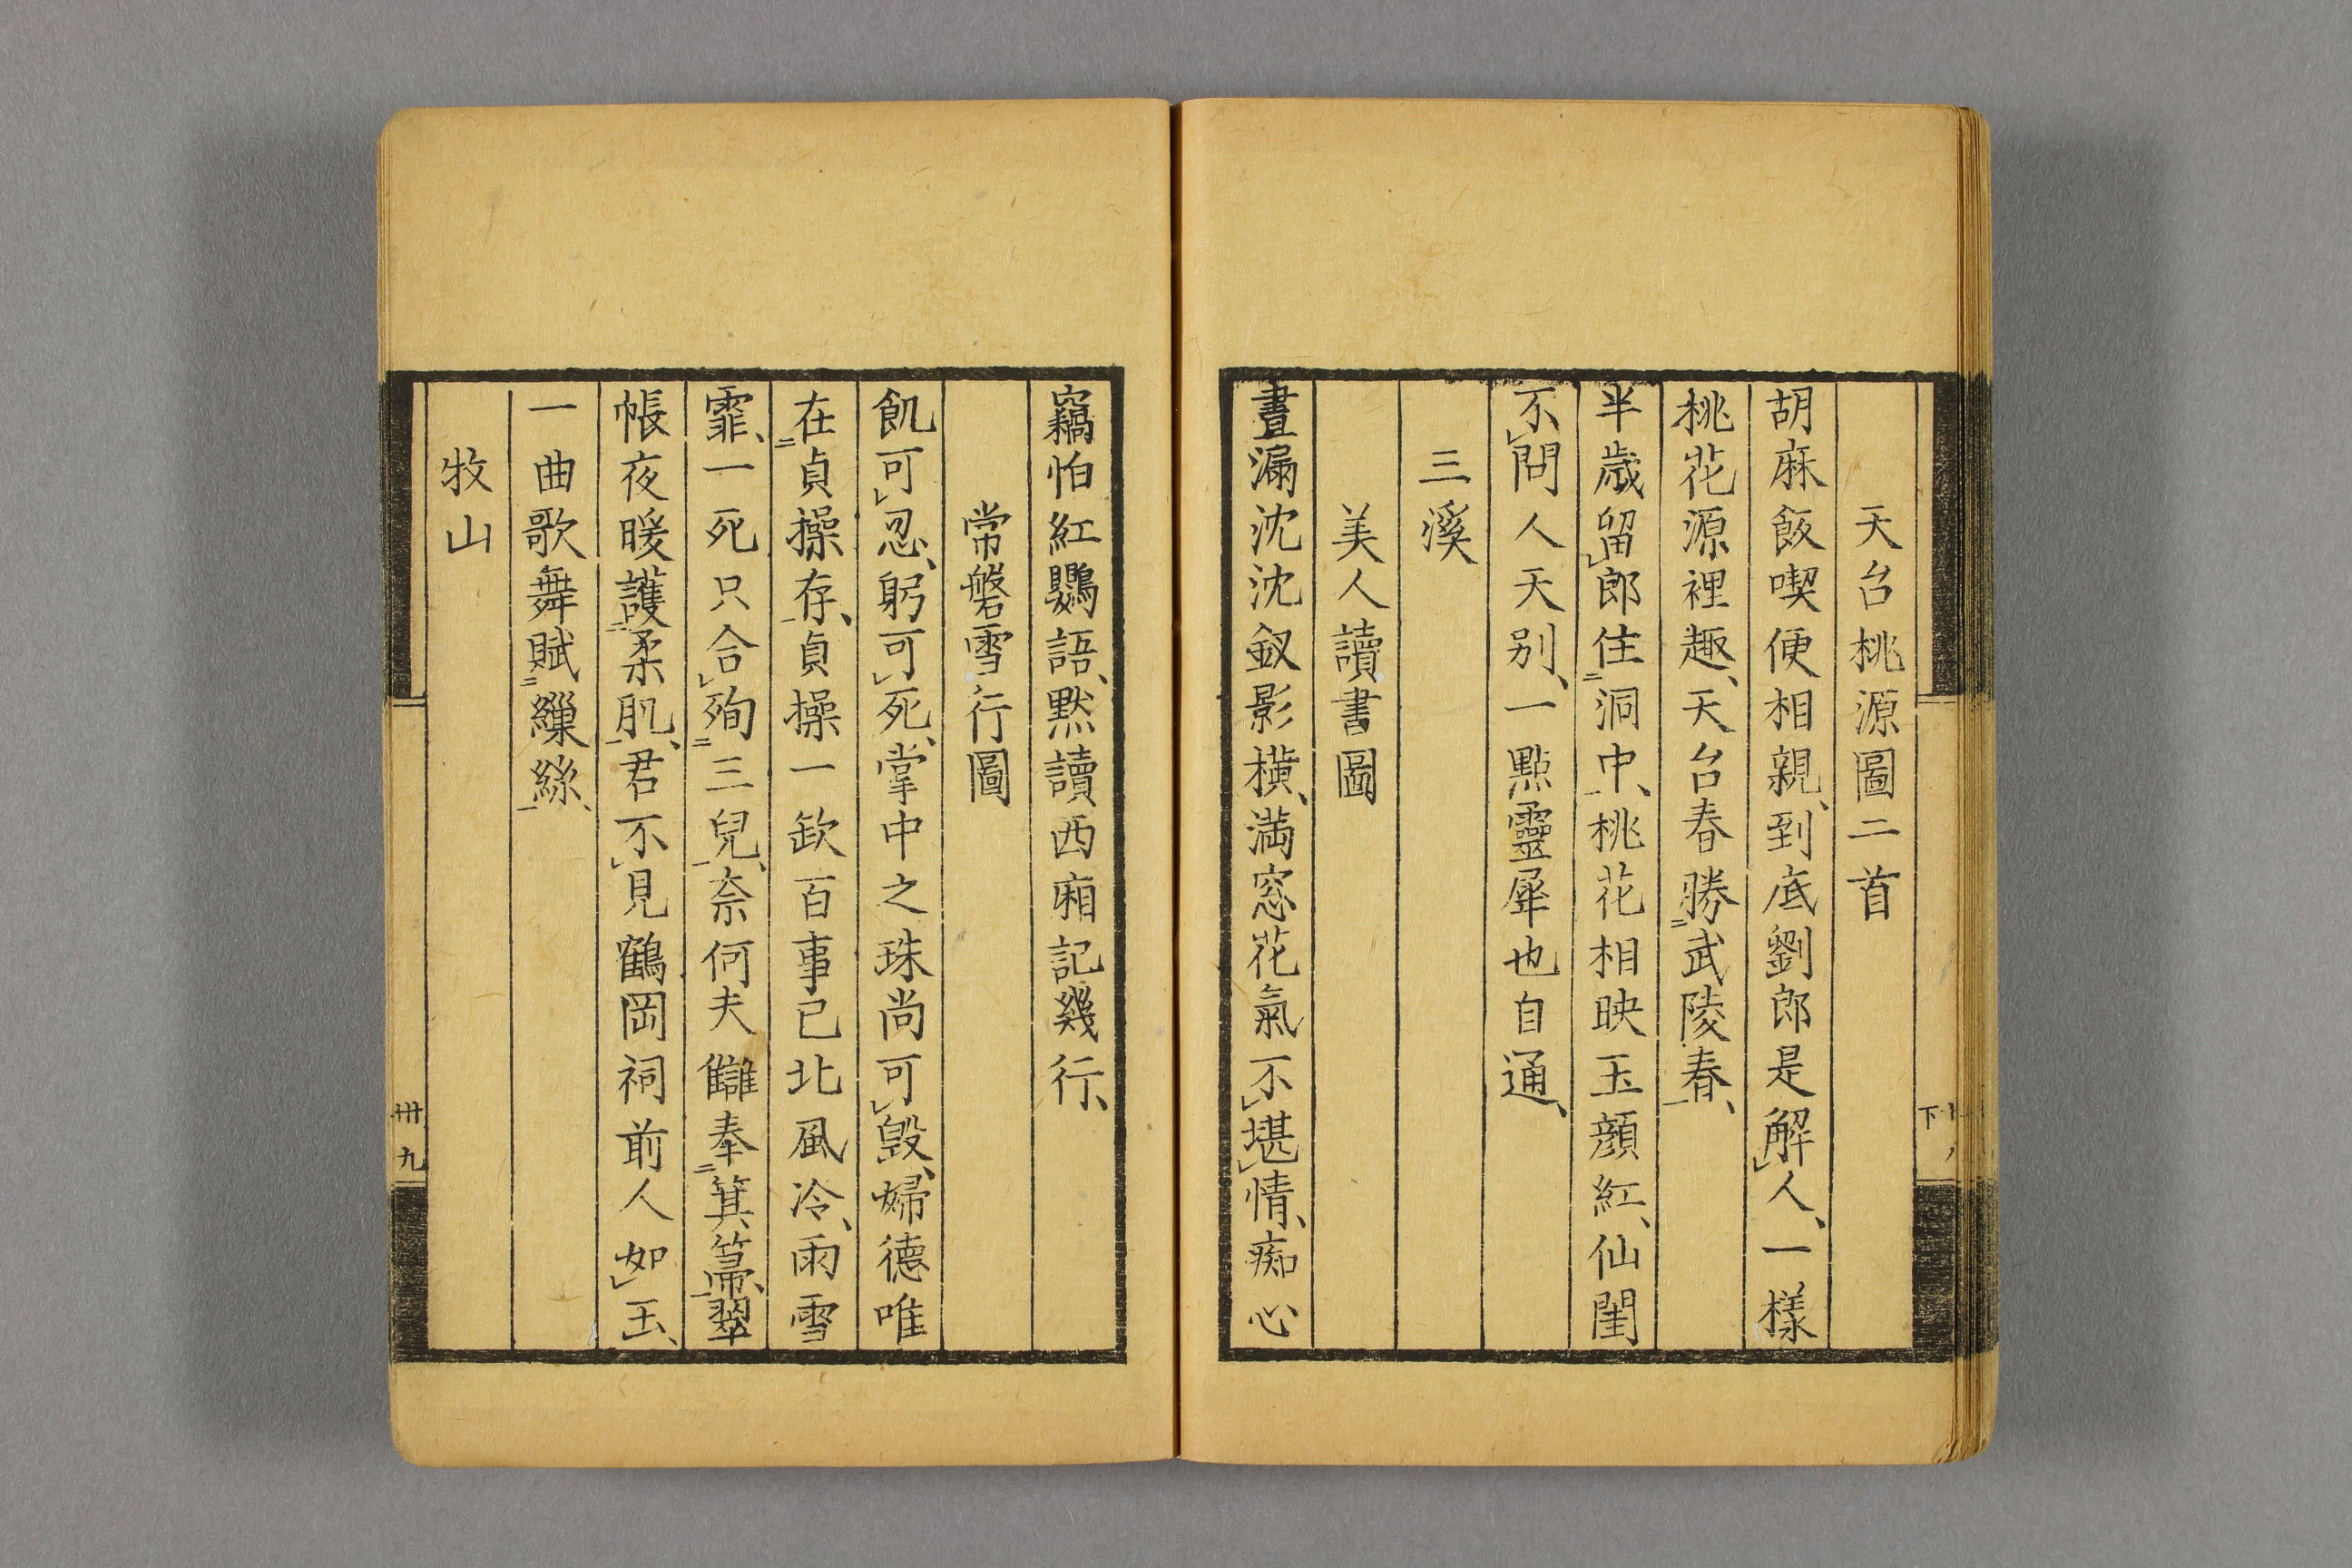 天台桃源圖二首
胡麻飯喫便相親、到底劉郎是解人、一樣
桃花源裡趣、天台春勝武陵春、
半歲留郎住洞中、桃花相映玉顔紅、仙閨
不問人天別、一點靈犀也自通、
三溪
美人讀書圖
晝漏沈沈釵影橫、満窓花氣不堪情、痴心
竊怕紅鸚語、默讀西廂記幾行、
常磐雪行圖
飢可忍、躬可死、掌中之珠尚可毀、婦德唯
在貞操存、貞操一欽百事已北風冷、雨雪
霏、一死只合殉三兒、奈何夫讎奉箕箒、翠
帳夜暖護柔肌、君不見鶴岡祠前人如玉、
一曲歌舞賦繅絲、
牧山
下
卅九